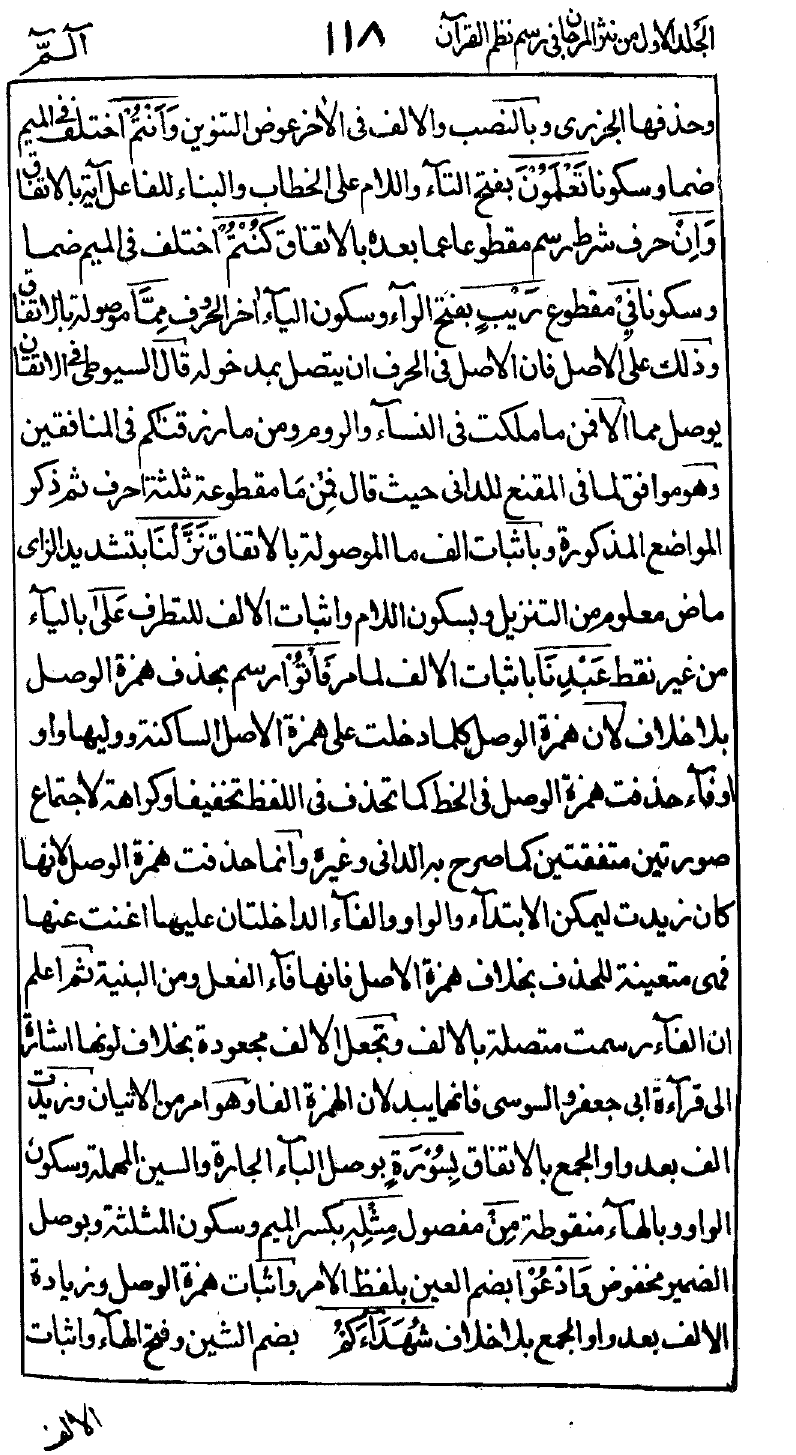 الجلد الاول من نثر المرجان في رسم نظم القرآن ١١٨ الٓمّٓ
وحذفها الجزرى وبالنصب والالف فى الاخر عوض التنوين وَاَنْتُمْ اختلف فى الميم
ضما وسكونا تَعْلَمُوْنَ بفتح التآء واللام على الخطاب والبناء للفاعل آية بالاتفاق
وَاِنْ حرف شرط رسم مقطوعا عما بعده بالاتفاق كُنْتُمْ اختلف فى الميم ضما
وسكونا فِيْ مقطوع رَيْبٍ بفتح الرآء وسكون اليآء اخر الحروف مِمَّا موصولة بالاتفاق
وذلك على الاصل فان الاصل فى الحرف ان يتصل بمدخوله قال السيوطى فى الاتقان
يوصل مما الا فمن ما ملكت فى النسآء والروم ومن ما رزقنكم فى المنافقين
وهو موافق لما فى المقنع للدانى حيث قال فمِنْ مَا مقطوعة ثلثة احرف ثم ذكر
المواضع المذكورة وباثبات الف ما الموصولة بالاتفاق نَزَّلْنَا بتشديد الزاى
ماض معلوم من التنزيل وبسكون اللام واثبات الالف للتطرف عَلىٰ باليآء
من غير نقط عَبْدِنَا باثبات الالف لما مر فَأْتُوْا رسم بحذف همزة الوصل
بلا خلاف لان همزة الوصل كلما دخلت على همزة الاصل الساكنة ووليها واو
او فآء حذفت همزة الوصل فى الخط كما تحذف فى اللفظ تخفيفا وكراهة لاجتماع
صورتين متفقتين كما صرح به الدانى وغيره وانما حذفت همزة الوصل لانها
كان زيدت ليمكن الابتدآء والواو والفآء الداخلتان عليها اغنت عنها
فهى متعينة للحذف بخلاف همزة الاصل فانها فآء الفعل ومن البنية ثم اعلم
ان الفآء رسمت متصلة بالالف وتجعل الالف مجعودة بخلاف لونها اشارة
الى قرآءة ابى جعفر والسوسى فانهما يبدلان الهمزة الفا وهو امر من الاتيان وزيدت
الف بعد واو الجمع بالاتفاق بِسُوْرَةٍ بوصل البآء الجارة والسين المهملة وسكون
الواو وبالهآء منقوطة مِنْ مفصول مِثْلِهٖ بكسر الميم وسكون المثلثة وبوصل
الضمير مخفوض وَادْعُوْا بضم العين بلفظ الامر واثبات همزة الوصل وزيادة
الالف بعد واو الجمع بلا خلاف شُهَدَآءَكُمْ بضم الشين وفتح الهآء واثبات
الالف